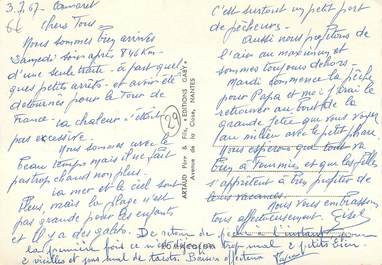 3.7.67. Camaret
66
Chers Tous
Nous sommes bien arrivés
Samedi soir après 846 Km.
d'une seule traite, à part quel-
ques petits arrêts et avoir été
détournés pour le Tour de
France. La chaleur n'était
pas excessive.
Nous sommes avec le
beau temps mais il ne fait
pas trop chaud non plus.
La mer et le ciel sont
bleus mais la plage n'est
pas grande pour les enfants
et il y a des galets.
ARTAUD Père & Fils, « EDITIONS GABY »
Avenue de la Close, NANTES
29
C'est surtout un petit port
de pêcheurs.
Aussi nous profitons de
l'air au maximum et
sommes toujours dehors
Mardi commence la pêche
pour Papa et moi j'irai le
retrouver au bout de la
grande jetée que vous voyez
au milieu avec le petit phare
Nous espérons que tout va
bien à Fourmies, et que les filles
s'apprêtent à bien profiter de
leurs vacances.
Nous vous embrassons
tous affectueusement. Gisèle
De retour de pêche à l'instant, pour
la première fois ce n'est pas trop mal 2 petits bien
2 vieilles et pas mal de tacots. Baisers affectueux